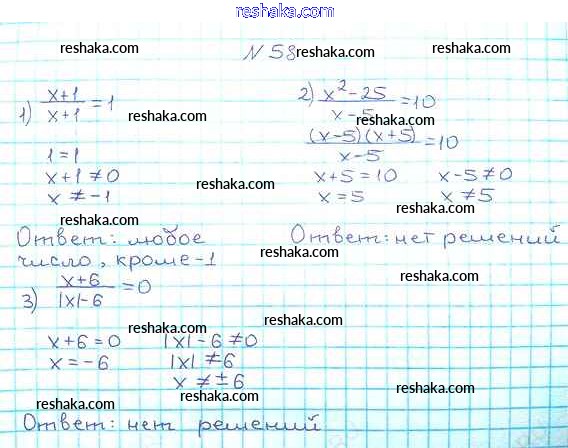 reshaka.com
reshaka.com
N 58 reshaka.com reshaka.com
1) x+1/x+1 = 1
reshaka.com
2) x² - 25 reshaka.com/x-5 = 10
reshaka.com
1 = 1
x+1 ≠ 0
x ≠ -1
reshaka.com
(x-5)(x+5)/x-5 = 10
x+5 = 10 x-5 ≠ 0
x = 5 x ≠ 5
reshaka.com
reshaka.com reshaka.com
Ответ: любое
число, кроме -1
Ответ: нет решений
reshaka.com
3) x+6/|x|-6 = 0
reshaka.com reshaka.com
x+6 = 0 |x|-6 ≠ 0
x = -6 |x| ≠ 6
x ≠ ±6
reshaka.com
reshaka.com
reshaka.com
reshaka.com
Ответ: нет решений
reshaka.com
reshaka.com